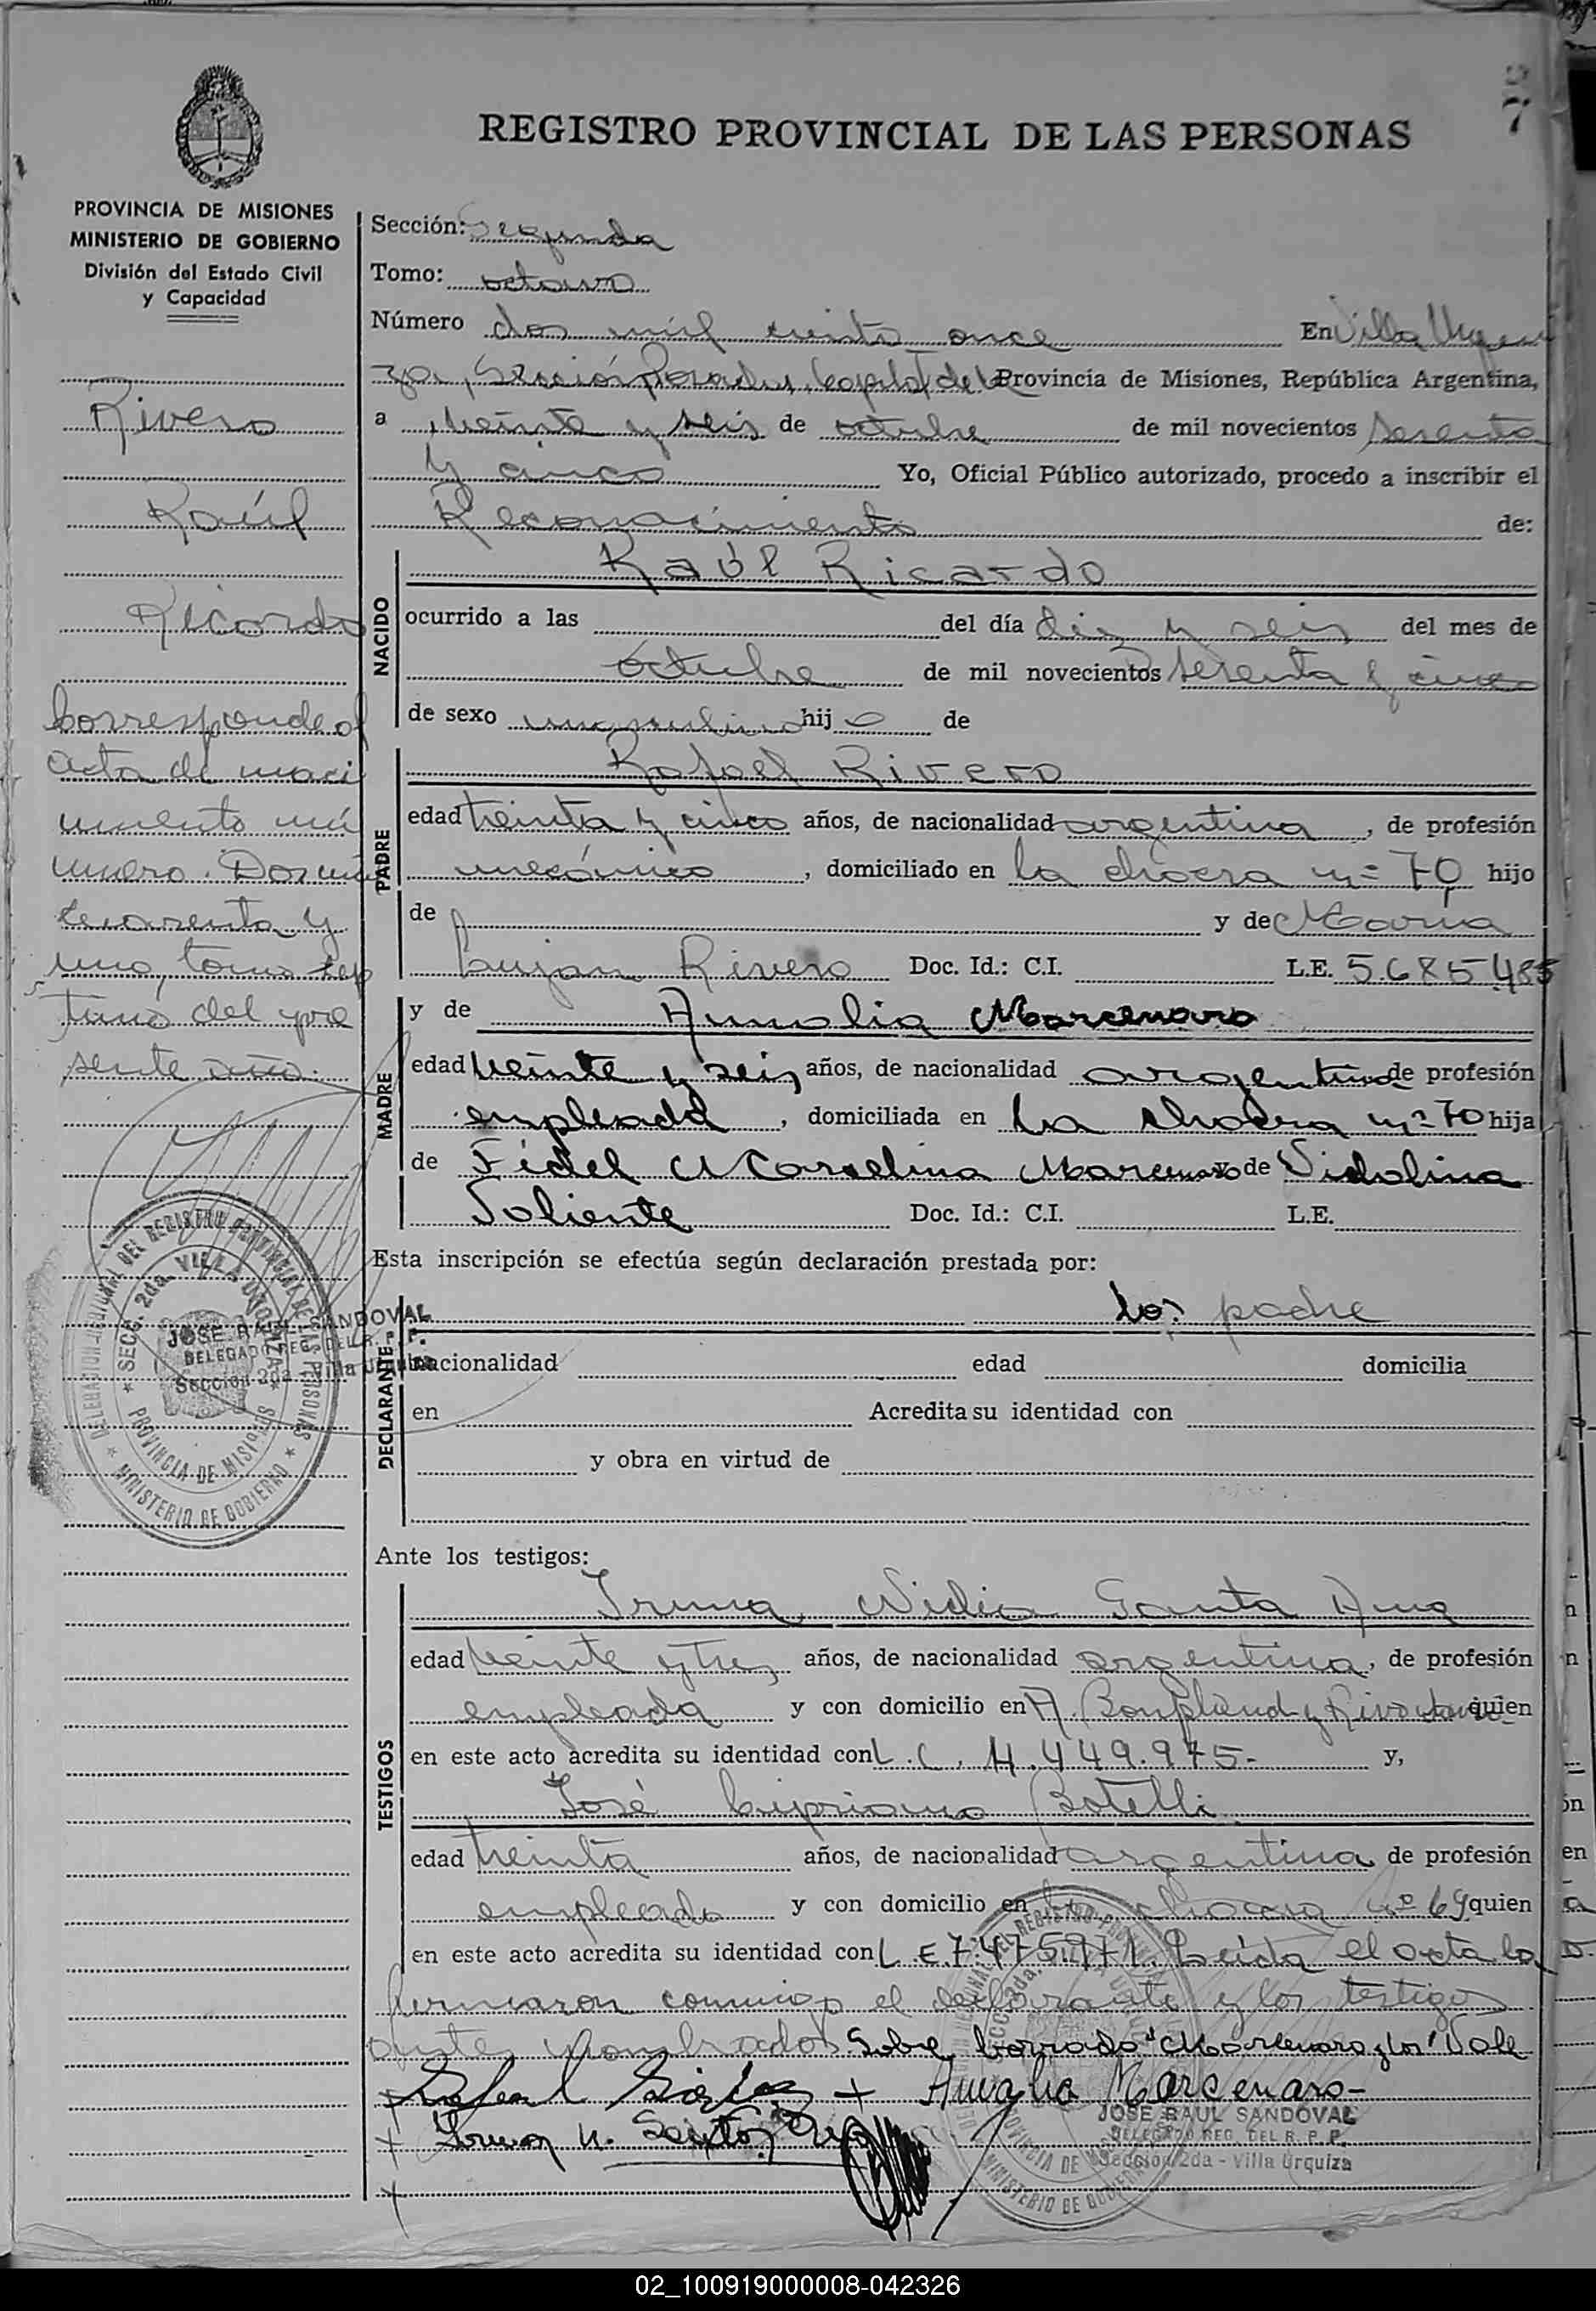 REGISTRO PROVINCIAL DE LAS PERSONAS
27
PROVINCIA DE MISIONES
MINISTERIO DE GOBIERNO
División del Estado Civil
y Capacidad
Rivero
Raúl
Ricardo
Corresponde al
acta de naci
miento nú
mero. Doscien
cuarenta y
uno, tomo sép
timo del pre
sente año.
Sección: Segunda
Tomo: octavo
Número dos mil ciento once En Villa Urqui
za, Sección Posadas, Capital de la Provincia de Misiones, República Argentina,
a veinte y seis de octubre de mil novecientos sesenta
y cinco Yo, Oficial Público autorizado, procedo a inscribir el
Reconocimiento de:
NACIDO
Raúl Ricardo
ocurrido a las del día diez y seis del mes de
octubre de mil novecientos sesenta y cinco
de sexo masculino hijo de
PADRE
Rafael Rivero
edad treinta y cinco años, de nacionalidad argentina, de profesión
mecánico, domiciliado en la chacra nº 70 hijo
de y de María
Lujan Rivero Doc. Id.: C.I. L.E. 5.685.485
MADRE
y de Amalia Marcenaro
edad veinte y seis años, de nacionalidad argentina de profesión
empleada, domiciliada en La chacra nº 70 hija
de Fidel Marcelino Marcenaro de Vidalina
Soliente Doc. Id.: C.I. L.E.
Esta inscripción se efectúa según declaración prestada por:
DECLARANTE
los padre
nacionalidad edad domicilia
en Acredita su identidad con
y obra en virtud de
Ante los testigos:
TESTIGOS
Irma Nidia Santa Ana
edad veinte y tres años, de nacionalidad argentina, de profesión
empleada y con domicilio en A. Bonpland y Rivadavia quien
en este acto acredita su identidad con L.C. 4.449.975.- y,
José Cipriano Botelli
edad treinta años, de nacionalidad argentina de profesión
empleado y con domicilio en la chacra nº 69 quien
en este acto acredita su identidad con L.E. 7.475.971. Leída el acta la
firmaron conmigo el declarante y los testigos
antes nombrados Sobre borrado "Marcenaro y los" Vale
Amalia Marcenaro-
Irma N. Santa Ana
JOSE RAUL SANDOVAL
DELEGADO REG. DEL R. P. P.
Sección 2da - Villa Urquiza
JOSE RAUL SANDOVAL
DELEGADO REG. DEL R. P. P.
Sección 2da - Villa Urquiza
DELEGACION REGIONAL DEL REGISTRO PROVINCIAL DE LAS PERSONAS
SECC. 2da. VILLA URQUIZA
PROVINCIA DE MISIONES
MINISTERIO DE GOBIERNO
02_100919000008-042326